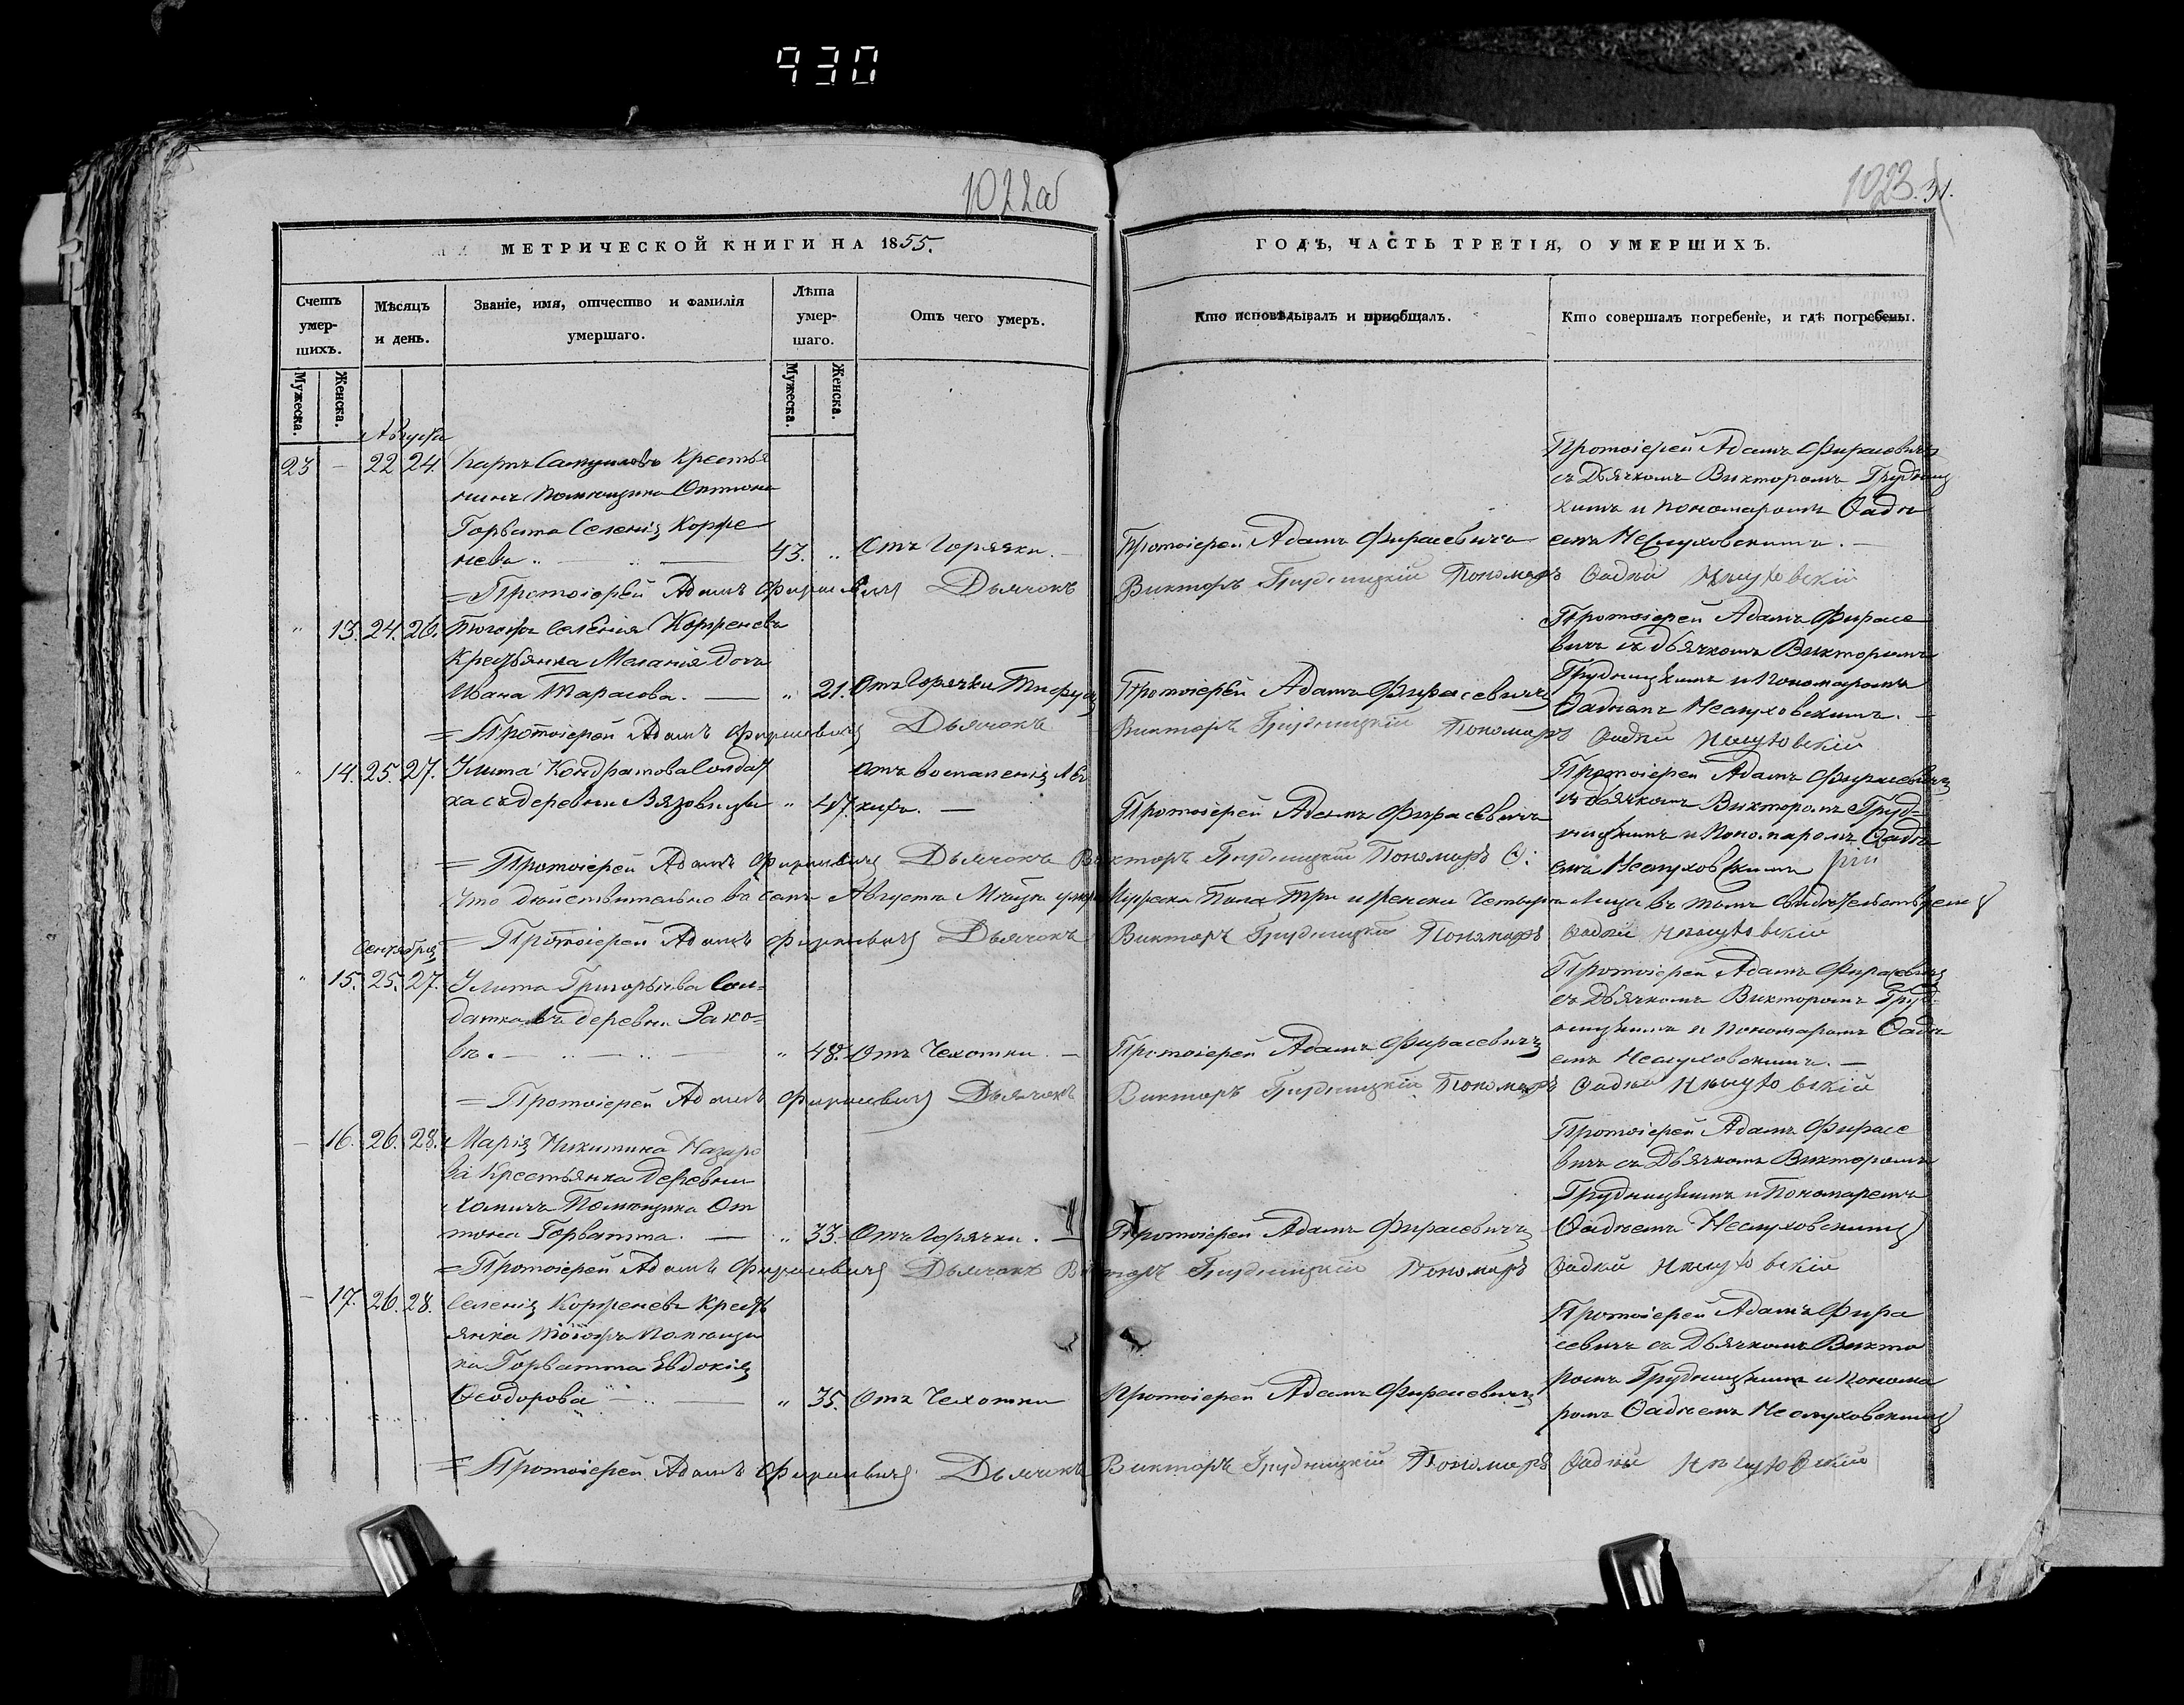 930
1022об
1023. 31.
МЕТРИЧЕСКОЙ КНИГИ НА 1855.
ГОДЪ, ЧАСТЬ ТРЕТІЯ, О УМЕРШИХЪ.
Счетъ умер-шихъ.
Мужеска.
Женска.
Мѣсяцъ и день.
Званіе, имя, отчество и фамилія умершаго.
Лѣта умер-шаго.
Мужеска.
Женска.
Отъ чего умеръ.
Кто исповѣдывалъ и приобщалъ.
Кто совершалъ погребеніе, и гдѣ погребены.
Августа
23 — 22 24. Карпъ Самуиловъ Крестья
нинъ Помющика Оттона
Горвата Селенія Корфе
нева 43. „ Отъ Горячки. —
Протоіерей Адамъ Фирасевичъ
Протоіерей Адамъ Фирасевичъ
съ Дьячкомъ Викторомъ Грудниц
кимъ и пономаромъ Фадѣ
емъ Неслуховскимъ. —
= Протоіерей Адамъ Фирасевичъ Дьячокъ Викторъ Грудницкій Пономаръ Фадѣй Неслуховскій
„ 13. 24. 26. Тогожъ Селенія Корфенева
Крестьянка Меланія дочь
Ивана Тарасова. — „ 21. Отъ Горячки Тифуса
Протоіерей Адамъ Фирасевичъ
Протоіерей Адамъ Фирасе
вичъ съ дьячкомъ Викторомъ
Грудницкимъ и Пономаромъ
Фадѣемъ Неслуховскимъ. —
= Протоіерей Адамъ Фирасевичъ Дьячокъ Викторъ Грудницкій Пономаръ Фадѣй Неслуховскій
„ 14. 25. 27. Улита Кондратова Солдат
ка съ деревни Вязовицы „ 47. отъ воспаленія лег
кихъ. —
Протоіерей Адамъ Фирасевичъ
Протоіерей Адамъ Фирасевичъ
съ дьячкомъ Викторомъ Груд-
ницкимъ и Пономаромъ Фадѣ
емъ Неслуховскимъ
= Протоіерей Адамъ Фирасевичъ Дьячокъ Викторъ Грудницкій Пономаръ Ф:
Что дѣйствительно въ семъ Августѣ Мѣсяцѣ умерло Мужеска Пола три и женска Четыри Лица въ томъ Свидетельствуемъ
= Протоіерей Адамъ Фирасевичъ Дьячокъ Викторъ Грудницкій Пономаръ Фадѣй Неслуховскій
Сентября
„ 15. 25. 27. Улита Григорьева Сол=
датка въ деревни Рако=
въ. — „ 48. Отъ Чехотки. —
Протоіерей Адамъ Фирасевичъ
Протоіерей Адамъ Фирасевичъ
съ Дьячкомъ Викторомъ Груд-
ницкимъ и Пономаромъ Фадѣ
емъ Неслуховскимъ. —
= Протоіерей Адамъ Фирасевичъ Дьячокъ Викторъ Грудницкій Пономаръ Фадѣй Неслуховскій
— 16. 26. 28. Марія Никитина Назаро
ва Крестьянка деревни
Хомичъ Помющика От
тона Горватта. — „ 33. Отъ Горячки. —
Протоіерей Адамъ Фирасевичъ
Протоіерей Адамъ Фирасе
вичъ съ Дьячкомъ Викторомъ
Грудницкимъ и Пономаремъ
Фадѣемъ Неслуховскимъ
= Протоіерей Адамъ Фирасевичъ Дьячокъ Викторъ Грудницкій Пономаръ Фадѣй Неслуховскій
— 17. 26. 28. Селенія Корфенева Кресть
янка тогожъ Помющи
ка Горватта Евдокія
Феодорова — „ 35. Отъ Чехотки
Протоіерей Адамъ Фирасевичъ
Протоіерей Адамъ Фира
севичъ съ Дьячкомъ Викто
ромъ Грудницкимъ и Понома
ромъ Фадѣемъ Неслуховскимъ
= Протоіерей Адамъ Фирасевичъ Дьячокъ Викторъ Грудницкій Пономаръ Фадѣй Неслуховскій